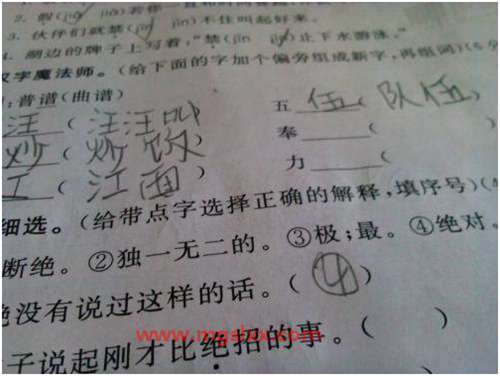 2. 假(jiǎ jià)若你一直和时间赛跑
3. 伙伴们就禁(jīn jìn)不住叫起好来。
4. 湖边的牌子上写着,“禁(jīn jìn)止下水游泳。”
汉字魔法师。(给下面的字加个偏旁组成新字,再组词)(6分
:普谱(曲谱)
汪(汪汪叫 五 伍(队伍)
炒(炒饭 奉 (
工(江面) 力 (
细选。(给带点字选择正确的解释,填序号)(4
断绝。②独一无二的。③极;最。④绝对。
没有说过这样的话。(④)
子说起刚才比绝招的事。( )